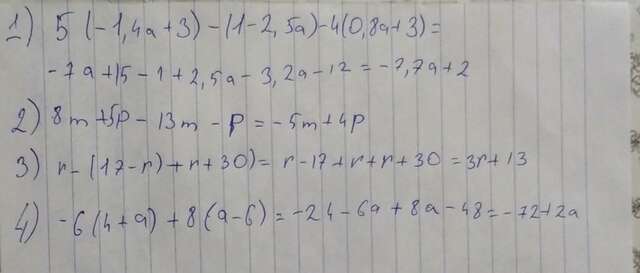 1) 5(-1,4a+3)-(1-2,5a)-4(0,8a+3)=
-7a+15-1+2,5a-3,2a-12=-7,7a+2
2) 8m+5p-13m-p=-5m+4p
3) r-(17-r)+r+30)=r-17+r+r+30=3r+13
4) -6(4+a)+8(a-6)=-24-6a+8a-48=-72+2a